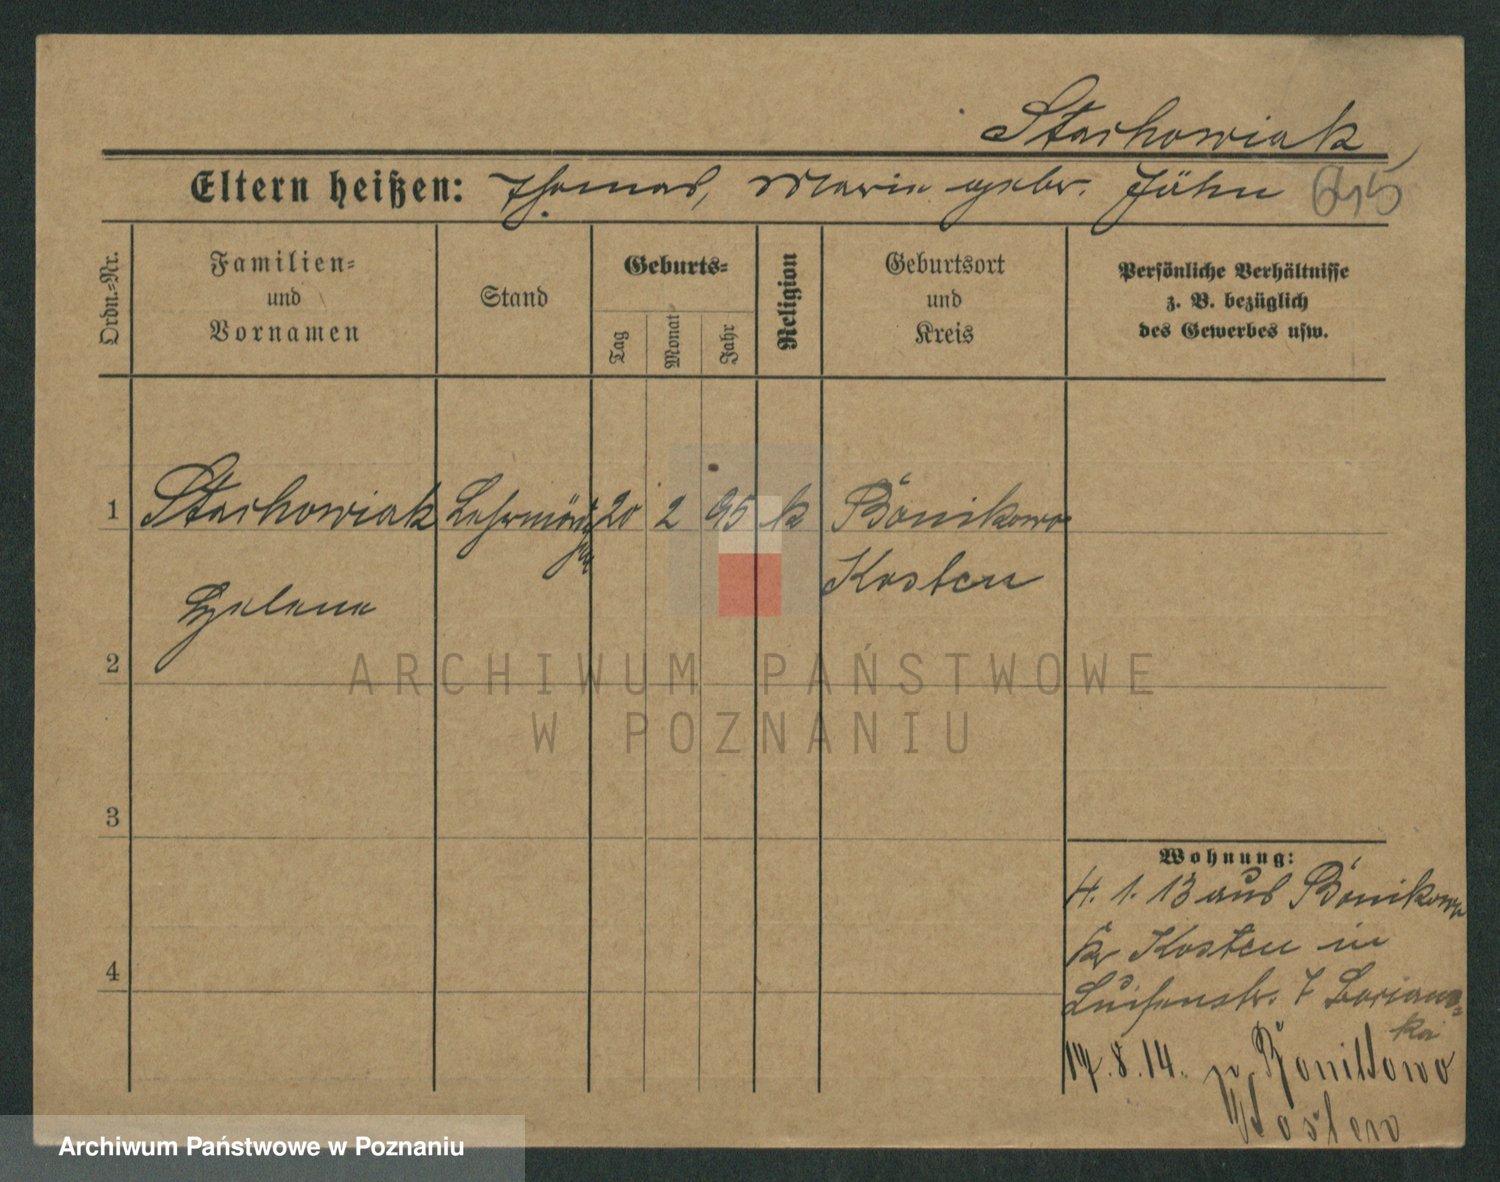 Stachowiak
Eltern heißen: Thomas, Marie gebr. Jähn 615
Ordn.-Nr.
Familien-
und
Vornamen
Stand
Geburts-
Tag
Monat
Jahr
Religion
Geburtsort
und
Kreis
Persönliche Verhältnisse
z. B. bezüglich
des Gewerbes usw.
1 Stachowiak 20 2 95 k Bonikowo
Kosten
Helene
2
ARCHIWUM PAŃSTWOWE
W POZNANIU
3
Wohnung:
4. 1. 13 aus Bonikowo
Kr Kosten in
4
Luisenstr. 7
17. 8. 14. n. Bonikowo
Kosten
Archiwum Państwowe w Poznaniu